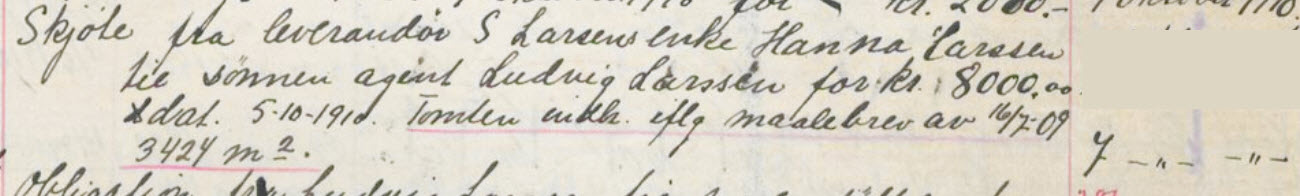 for kr. 2000.- 7 oktober 1910.
Skjöte fra leverandör S Larsens enke Hanna Larssen
til sönnen agent Ludvig Larssen for kr. 8000,00.
dat. 5-10-1910. Tomten indh. iflg maalebrev av 16/7-09
3424 m2. 7 -"- -"-
Obligation fra Ludvig